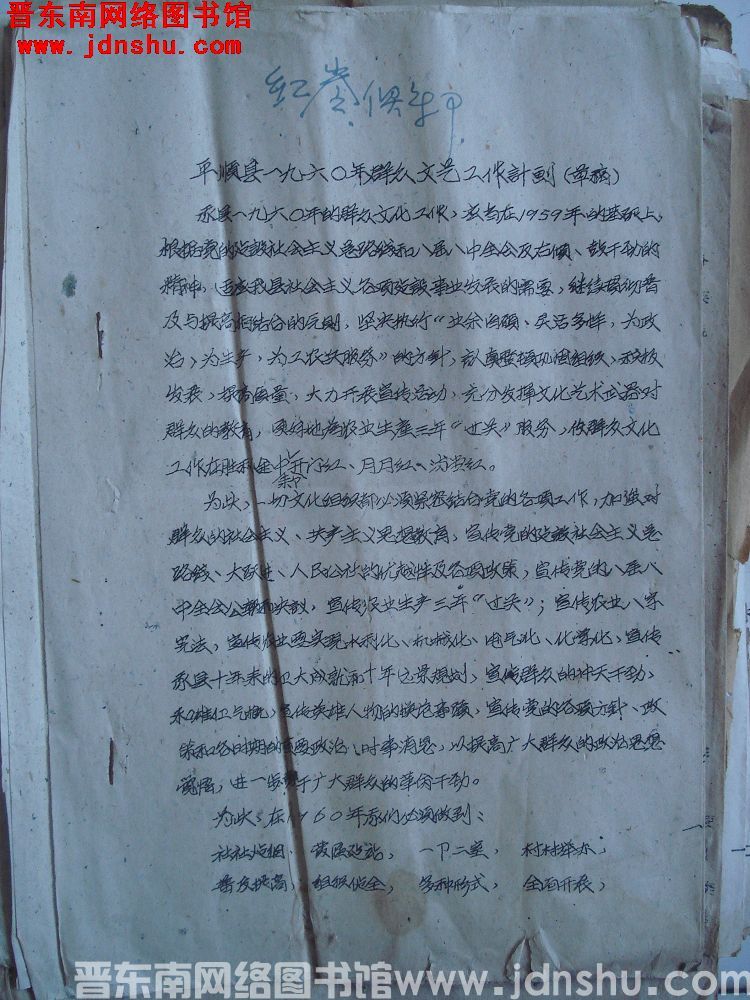 晋东南网络图书馆
www.jdnshu.com
平順县一九六〇年群众文艺工作計划(草稿)
我县一九六〇年的群众文化工作,应当在1959年的基础上,
根据党的建設社会主义总路线和八届八中全会反右傾、鼓干劲的
精神,适应我县社会主义各项建設事业发展的需要,継續貫彻普
及与提高相結合的元則,坚决执行“业余自願、灵活多样,为政
治,为生产,为工农兵服务”的方針,认真整頓巩固組织,积极
发展,提高质量,大力开展宣传活动,充分发挥文化艺术武器对
群众的教育,更好地为农业生産三年“过关”服务,使群众文化
工作在胜利基础上开门红、月月红、满堂红。
为此,一切文化組织都必須緊密結合党的各項工作,加强对
群众的社会主义、共产主义思想教育,宣传党的建設社会主义总
路綫、大跃进、人民公社的优越性及各項政策,宣传党的八届八
中全会公報和决議,宣传农业生产三年“过关”;宣传农业八字
宪法,宣传农业要实現水利化、机械化、电气化、化学化,宣传
我县十年来的巨大成就和十年远景規划,宣传群众的冲天干劲,
和雄伟气概,宣传英雄人物的模范事蹟、宣传党的各項方針、政
策和各时期的重要政治、时事消息,以提高广大群众的政治思想
覚悟,进一步鼓干广大群众的革命干劲。
为此:在1960年我們必須做到:
社社 一 二室, 村村举办,
普及提高, 組织健全, 多种形式, 全面开展,
晋东南网络图书馆 www.jdnshu.com